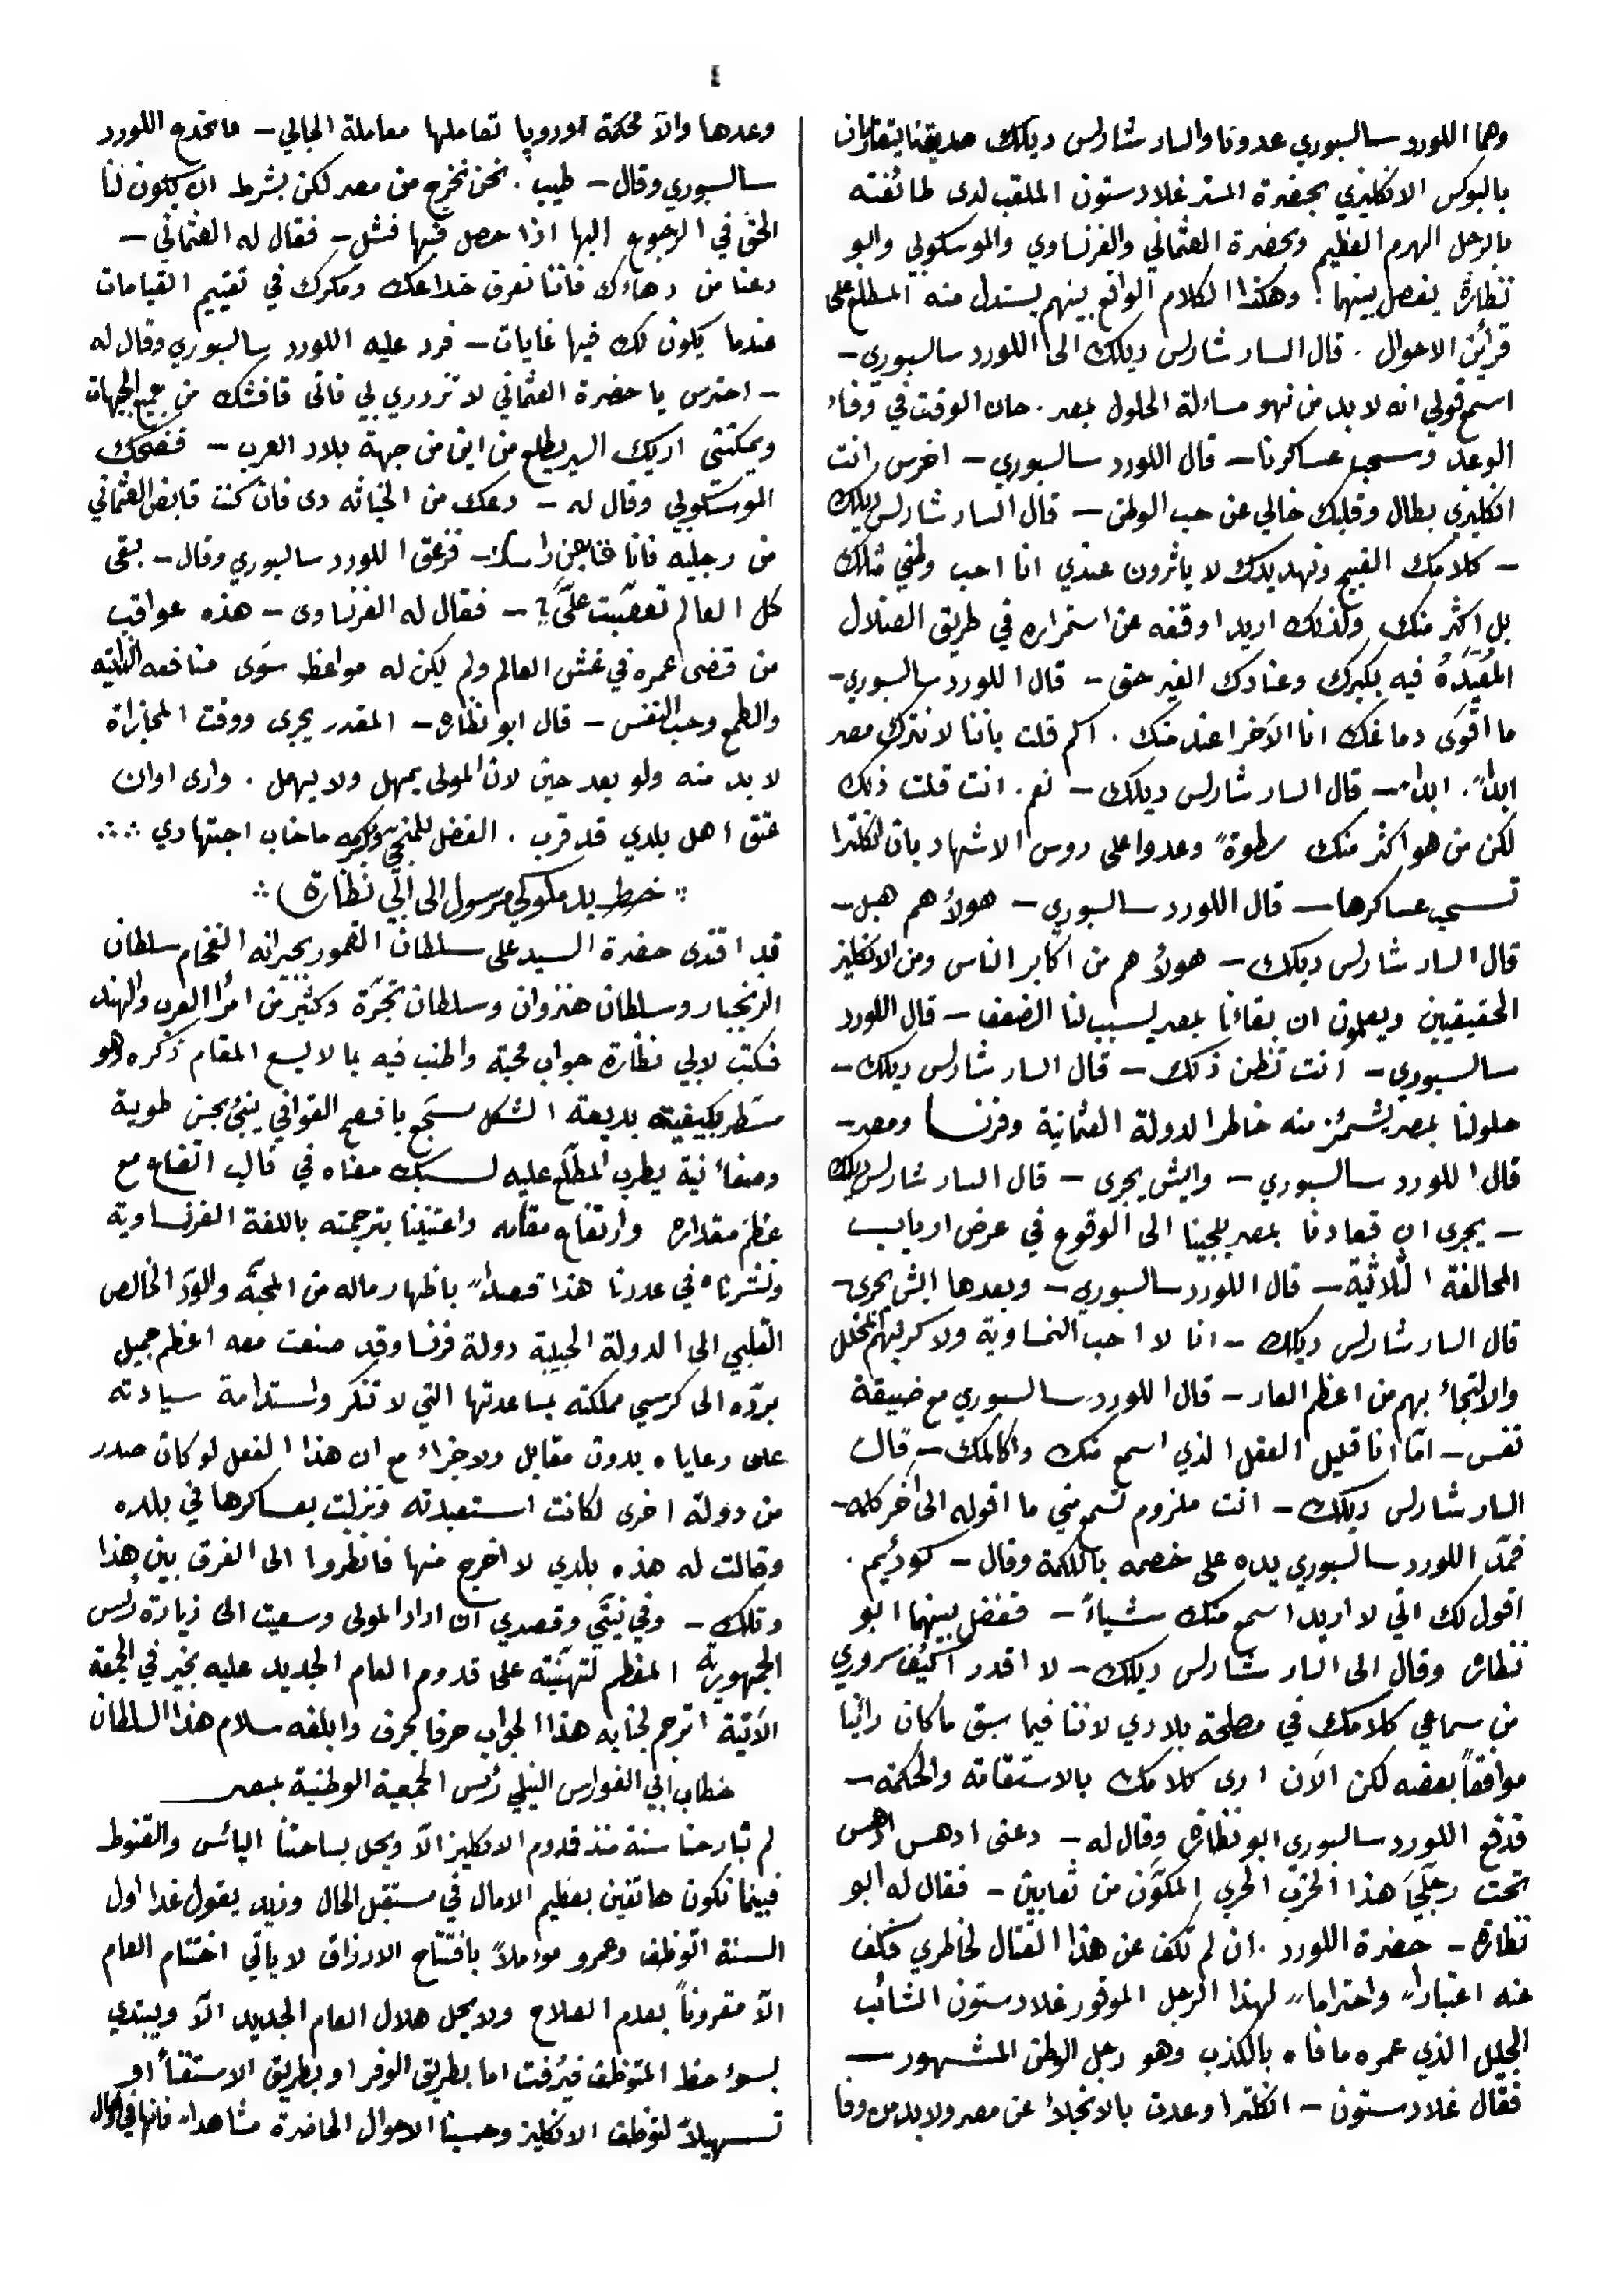 ٤
وهما اللورد سالسبوري عدونا والسار شارلس ديلك صديقنا يتقاتلان
بالبوكس الانكليزي بحضرة المستر غلادستون الملقب لدى طائفته
بالرجل الهرم العظيم وبحضرة العثماني والفرنساوي والموسكوبي وابو
نظارة يفصل بينهما ! وهكذا الكلام الواقع بينهم يستدل منه المطلع على
قرائن الاحوال . قال السار شارلس ديلك الى اللورد سالسبوري –
اسمع قولي انه لا بد من نهو مسالة الحلول بمصر . حان الوقت في وفاء
الوعد وسحب عساكرنا – قال اللورد سالسبوري – اخرس انت
انكليزي بطال وقلبك خالي عن حب الوطن – قال السار شارلس ديلك
– كلامك القبيح وتهديدك لا ياثرون عندي انا احب وطني مثلك
بل اكثر منك ولذلك اريد اوقفه عن استمراره في طريق الضلال
المقيده فيه بكبرك وعنادك الغير حق – قال اللورد سالسبوري –
ما اقوى دماغك انا الآخر اعند منك . اكم قلت باننا لا نترك مصر
ابداً . ابداً – قال السار شارلس ديلك – نعم . انت قلت ذلك
لكن من هو اكثر منك سطوةً وعدوا على روس الاشهاد بان انكلترا
تسحب عساكرها – قال اللورد سالسبوري – هولاء هم هبل –
قال السار شارلس ديلك – هولاء هم من اكابر الناس ومن الانكليز
الحقيقيين ويعلمون ان بقاءنا بمصر يسبب لنا الضعف – قال اللورد
سالسبوري – انت تظن ذلك – قال السار شارلس ديلك –
حلولنا بمصر يشمئز منه خاطر الدولة العثمانية وفرنسا ومصر –
قال اللورد سالسبوري – وايش يجرى – قال السار شارلس ديلك
– يجرى ان قعادنا بمصر يلجينا الى الوقوع في عرض ارباب
المحالفة الثلاثية – قال اللورد سالسبوري – وبعدها ايش يجرى
قال السار شارلس ديلك – انا لا احب النمساوية ولا كرنبهم المخلل
والالتجاء بهم من اعظم العار – قال اللورد سالسبوري مع ضيقة
نفس – امّا انا قليل العقل الذي اسمع منك واكالمك – قال
السار شارلس ديلك – انت ملزوم تسمع مني ما اقوله الى آخر كلمه –
فمدّ اللورد سالسبوري يده على خصمه باللكمة وقال – كودئيم .
اقول لك اني لا اريد اسمع منك شياءً – ففضل بينهما ابو
نظاره وقال الى السار شارلس ديلك – لا اقدر اكيّف سروري
من سماعي كلامك في مصلحة بلادي لاننا فيما سبق ما كان راينا
موافقاً بعضه لكن الآن ارى كلامك بالاستقامة والحكمة –
فدفع اللورد سالسبوري ابو نظارة وقال له – دعنى ادهس ادهس
تحت رجليَّ هذا الحزب الحري المكوَّن من ثعابين – فقال له ابو
نظارة – حضرة اللورد . ان لم تكف عن هذا القتال لخاطري فكف
عنه اعتباراً واحتراماً لهذا الرجل الموقور غلادستون الشائب
الجليل الذي عمره ما فاه بالكذب وهو رجل الوطن المشهور –
فقال غلادستون – انكلترا وعدت بالانجلاء عن مصر ولا بد من وفا
وعدها والاّ محكمة اوروپا تعاملها معاملة الجالي – فانخدع اللورد
سالسبوري وقال – طيب . نحن نخرج من مصر لكن بشرط ان يكون لنا
الحق في الرجوع اليها اذا حصل فيها فشل – فقال له العثماني –
دعنا من دهاءك فاننا نعرف خداعك ومكرك في تقييم القيامات
عندما يكون لك فيها غايات – فرد عليه اللورد سالسبوري وقال له
– احترس يا حضرة العثماني لا تزدري بي فانى قافشك من جميع الجهات
ويمكننى اريك السير يطلع من اين من جهة بلاد العرب – فضحك
الموسكوبي وقال له – دعك من الخباثه دى فان كنت قابض العثماني
من رجليه فانا عن راسك – فزعق اللورد سالسبوري وقال – بقى
كل العالم تعصّبت علىَّ ؟ – فقال له الفرنساوى – هذه عواقب
من قضى عمره في غش العالم ولم يكن له مواعظ سَوى منافعه الذاتيه
والطمع وحب النفس – قال ابو نظاره – المقدر يجرى ووقت المجازاة
لا بد منه ولو بعد حين لان المولى يمهل ولا يهمل . وارى اوان
عتق اهل بلدي قد قرب . الفضل للمنجّي وبكرمه ما خاب اجتهادي ∴
∴ خط يد ملوكي مرسول الى ابي نظارة ∴
قد اقتدى حضرة السيد على سلطان القمور بجيرانه الفخام سلطان
الزنجبار وسلطان هنزوان وسلطان تجرّة وكثير من امرأ العرب والهند
فكتب لابي نظارة جواب محبة واطنب فيه بما لا يسع المقام ذكره وهو
مسطر بكيفية بديعة الشكل مسجع بافصح القوافي ينبئ بحسن طوية
وصفاء نية يطرب المطلّع عليه لسبك معناه في قالب اتضاع مع
عظم مقداره وارتفاع مقامه واعتنينا بترجمته باللغة الفرنساوية
ونشرناه في عددنا هذا قصداً باظهار ماله من المحبَّة والودّ الخالص
القلبي الى الدولة الحبيبة دولة فرنسا وقد صنعت معه اعظم جميل
بردّه الى كرسي مملكته بمساعدتها التي لا تنكر واستدامة سيادته
على رعاياه بدون مقابل ولا جزاء مع ان هذا الفعل لو كان صدر
من دولة اخرى لكانت استعبدته ونزلت بعساكرها في بلده
وقالت له هذه بلدي لا اخرج منها فانظروا الى الفرق بين هذا
وتلك – وفي نيتّي وقصدي ان اراد المولى وسعيت الى زيارة رئيس
الجمهورية المعظم لتهنئته على قدوم العام الجديد عليه بخير في الجمعة
الآتية اترجم لجنابه هذا الجواب حرفا بحرف وابلغه سلام هذا السلطان
خطاب ابي الفوارس النيلي رئيس الجمعية الوطنية بمصر
لم تبارحنا سنة منذ قدوم الانكليز الاّ ويحل بساحتنا اليائس والقنوط
فبينما نكون هاتفين بعظيم الامال في مستقبل الحال وزيد يقول غدا اول
السنة اتوظف وعمرو موءملاً بافتتاح الارزاق لا ياتي اختتام العام
الاّ مقروناً بعدم الصلاح ولا يحل هلال العام الجديد الاّ ويبتدي
بسوء حظ المتوظف فيُرفت اما بطريق الوفر او بطريق الاستغنأ او
تسهيلاً لتوظف الانكليز وحسبنا الاحوال الحاضرة مشاهداً فانها في الحال